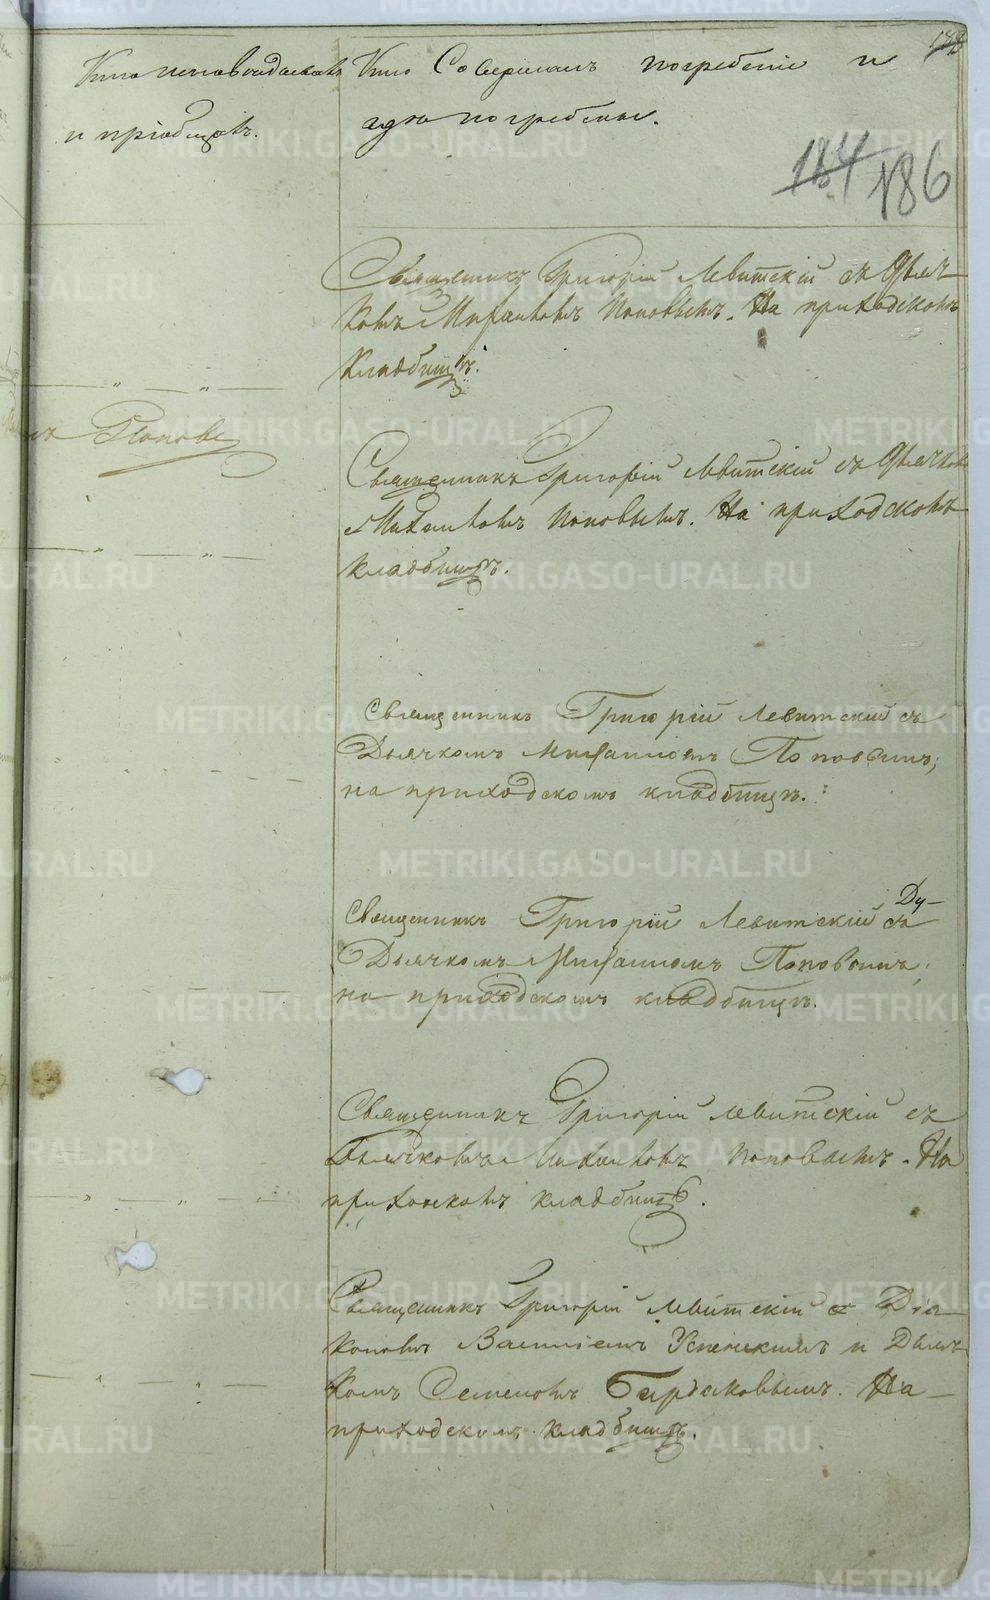 Кто исповѣдывалъ
и пріобщалъ.
Кто Совершалъ погребеніе и
гдѣ погребены.
184 186
Священникъ Григорій Левитскій съ Дьяч-
комъ Михаиломъ Поповымъ. На приходскомъ
Кладбищѣ.
Поповъ
Священникъ Григорій Левитскій съ Дьячкомъ
Михаиломъ Поповымъ. На приходскомъ
кладбищѣ.
Священникъ Григорій Левитскій съ
Дьячкомъ Михаиломъ Поповымъ;
на приходскомъ кладбищѣ.
Ду-
Священникъ Григорій Левитскій съ
Дьячкомъ Михаиломъ Поповымъ,
на приходскомъ кладбищѣ.
Священникъ Григорій Левитскій съ
Дьячкомъ Михаиломъ Поповымъ. На
приходскомъ кладбищѣ.
Священникъ Григорій Левитскій съ Діа-
кономъ Василіемъ Успенскимъ и Дьяч-
комъ Семеномъ Бирюковымъ. На-
приходскомъ кладбищѣ.
METRIKI.GASO-URAL.RU